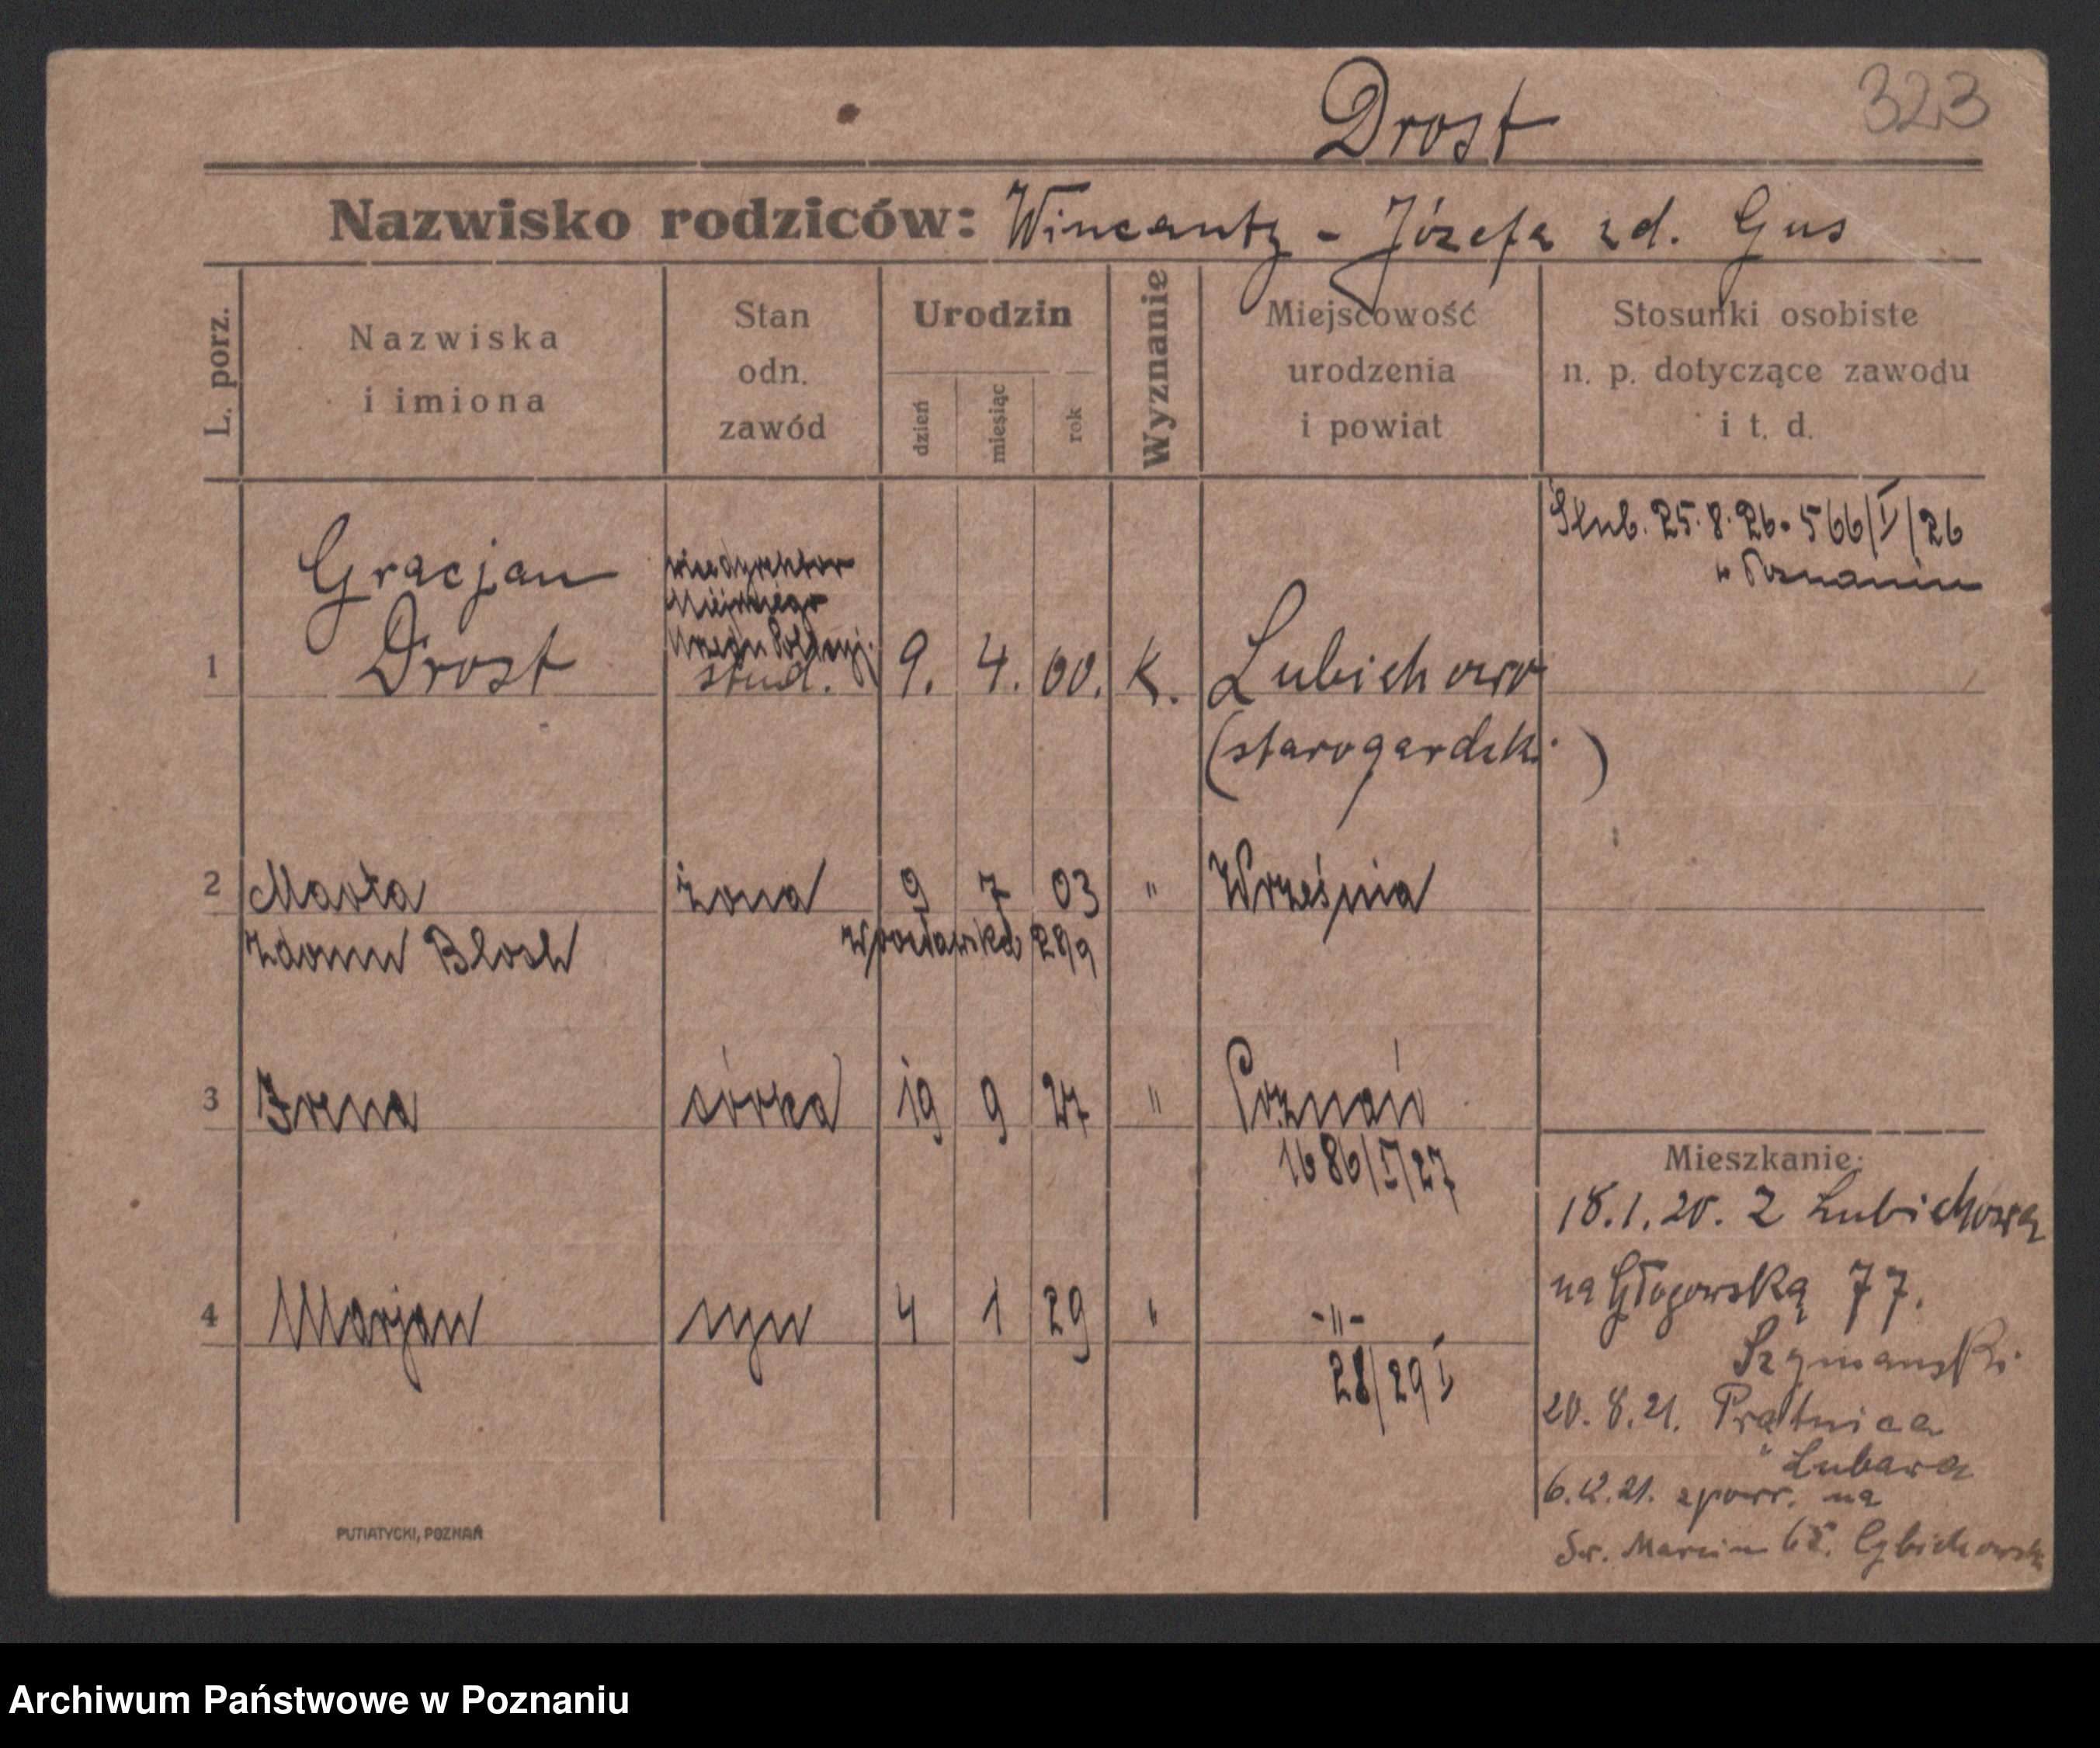 323
Drost
Nazwisko rodziców: Wincenty - Józefa zd. Gus
L. porz.
Nazwiska
i imiona
Stan
odn.
zawód
Urodzin
dzień
miesiąc
rok
Wyznanie
Miejscowość
urodzenia
i powiat
Stosunki osobiste
n. p. dotyczące zawodu
i t. d.
Ślub. 25.8.26. 566/I/26
w Poznaniu
wicedyrektor
Miejskiego
1 Gracjan
Drost stud. 9. 4. 00. K. Lubichowo
(starogardzki)
2 Marta żona 9 7 03 " Września
zdomu Bloch 28/9
3 Irena córka 19 9 27 " Poznań
1686/I/27
4 Marjan syn 4 1 29 " -"-
28/29 I
Mieszkanie:
18.1.20. Z Lubichowa
na Głogowską 77.
Szymański
20.8.21. Prątnica
Lubawa
6.12.21. zpowr. na
Św. Marcin 65. Cybichowski
PUTIATYCKI, POZNAŃ
Archiwum Państwowe w Poznaniu